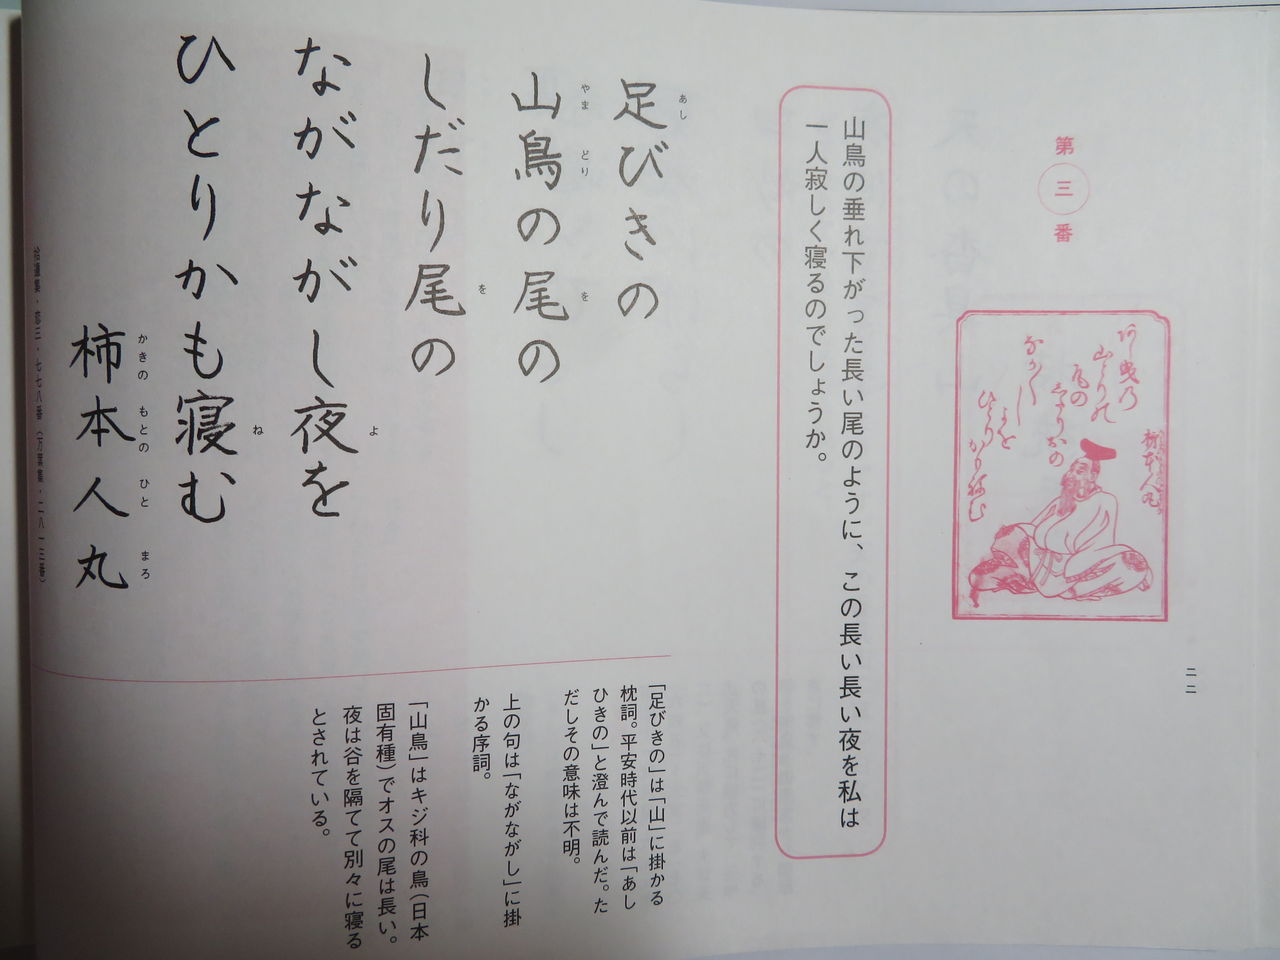 第三番
山鳥の垂れ下がった長い尾のように、この長い長い夜を私は
一人寂しく寝るのでしょうか。
足びきの
あし
山鳥の尾の
やま どり を
しだり尾の
を
ながながし夜を
よ
ひとりかも寝む
ね
柿本人丸
かきの もとの ひと まろ
拾遺集・恋三・七七八番（万葉集・二八一三番）
「足びきの」は「山」に掛かる
枕詞。平安時代以前は「あし
ひきの」と澄んで読んだ。た
だしその意味は不明。
上の句は「ながながし」に掛
かる序詞。
「山鳥」はキジ科の鳥（日本
固有種）でオスの尾は長い。
夜は谷を隔てて別々に寝る
とされている。
二二